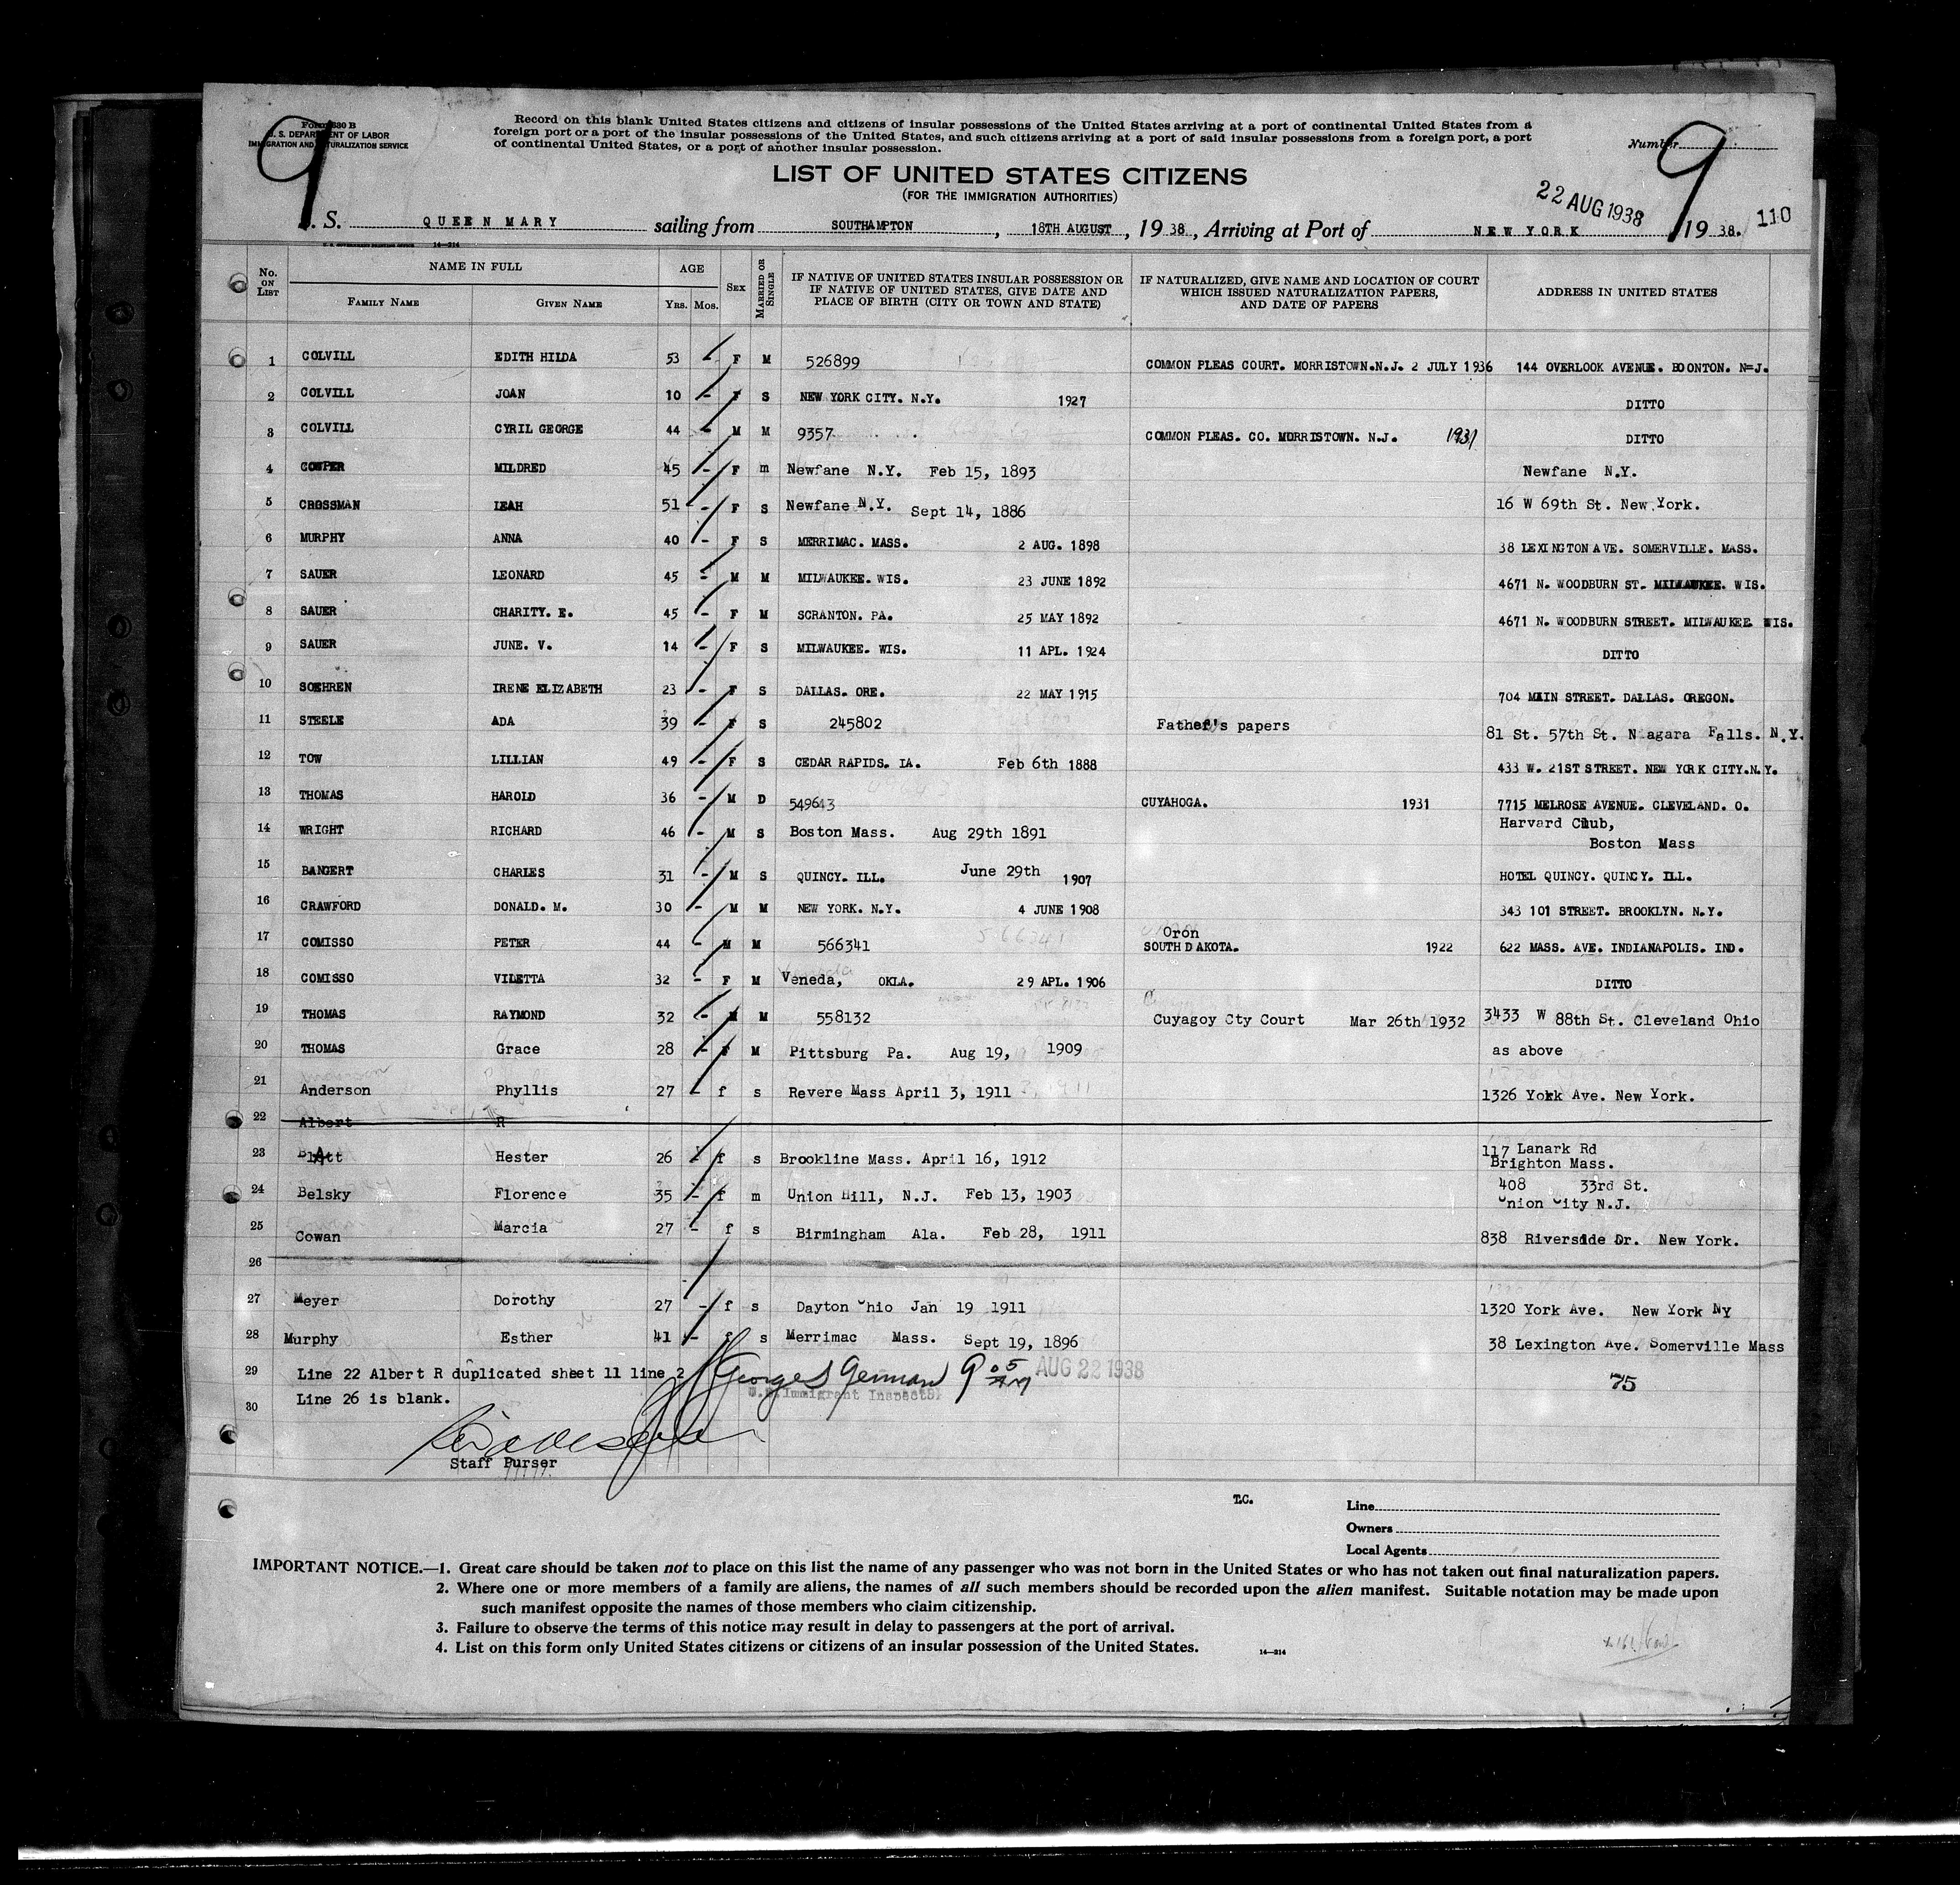 Form 630 B
U. S. DEPARTMENT OF LABOR
IMMIGRATION AND NATURALIZATION SERVICE
9
Record on this blank United States citizens and citizens of insular possessions of the United States arriving at a port of continental United States from a
foreign port or a port of the insular possessions of the United States, and such citizens arriving at a port of said insular possessions from a foreign port, a port
of continental United States, or a port of another insular possession.
Number 9
LIST OF UNITED STATES CITIZENS
(FOR THE IMMIGRATION AUTHORITIES)
22 AUG 1938
110
S. S. QUEEN MARY sailing from SOUTHAMPTON, 18TH AUGUST, 19 38, Arriving at Port of NEW YORK 19 38.
U. S. GOVERNMENT PRINTING OFFICE 14—214
No. ON LIST NAME IN FULL AGE SEX MARRIED OR SINGLE IF NATIVE OF UNITED STATES INSULAR POSSESSION OR IF NATIVE OF UNITED STATES, GIVE DATE AND PLACE OF BIRTH (CITY OR TOWN AND STATE) IF NATURALIZED, GIVE NAME AND LOCATION OF COURT WHICH ISSUED NATURALIZATION PAPERS, AND DATE OF PAPERS ADDRESS IN UNITED STATES
FAMILY NAME GIVEN NAME YRS. MOS.
1 COLVILL EDITH HILDA 53 - F M 526899 COMMON PLEAS COURT. MORRISTOWN.N.J. 2 JULY 1936 144 OVERLOOK AVENUE. BOONTON. N=J.
2 COLVILL JOAN 10 - F S NEW YORK CITY. N.Y. 1927 DITTO
3 COLVILL CYRIL GEORGE 44 - M M 9357 COMMON PLEAS. CO. MORRISTOWN. N.J. 1931 DITTO
4 COWPER MILDRED 45 - F m Newfane N.Y. Feb 15, 1893 Newfane N.Y.
5 CROSSMAN LEAH 51 - F S Newfane N.Y. Sept 14, 1886 16 W 69th St. New York.
6 MURPHY ANNA 40 - F S MERRIMAC. MASS. 2 AUG. 1898 38 LEXINGTON AVE. SOMERVILLE. MASS.
7 SAUER LEONARD 45 - M M MILWAUKEE. WIS. 23 JUNE 1892 4671 N. WOODBURN ST. MILWAUKEE. WIS.
8 SAUER CHARITY. E. 45 - F M SCRANTON. PA. 25 MAY 1892 4671 N. WOODBURN STREET. MILWAUKEE. WIS.
9 SAUER JUNE. V. 14 - F S MILWAUKEE. WIS. 11 APL. 1924 DITTO
10 SOEHREN IRENE ELIZABETH 23 - F S DALLAS. ORE. 22 MAY 1915 704 MAIN STREET. DALLAS. OREGON.
11 STEELE ADA 39 - F S 245802 Father's papers 81 St. 57th St. Niagara Falls. N.Y.
12 TOW LILLIAN 49 - F S CEDAR RAPIDS. IA. Feb 6th 1888 433 W. 21ST STREET. NEW YORK CITY.N.Y.
13 THOMAS HAROLD 36 - M D 549643 CUYAHOGA. 1931 7715 MELROSE AVENUE. CLEVELAND. O.
14 WRIGHT RICHARD 46 - M S Boston Mass. Aug 29th 1891 Harvard Club,
Boston Mass
15 BANGERT CHARLES 31 - M S QUINCY. ILL. June 29th 1907 HOTEL QUINCY. QUINCY. ILL.
16 CRAWFORD DONALD. M. 30 - M M NEW YORK. N.Y. 4 JUNE 1908 343 101 STREET. BROOKLYN. N.Y.
17 COMISSO PETER 44 - M M 566341 566341 Oron
SOUTH DAKOTA. 1922 622 MASS. AVE. INDIANAPOLIS. IND.
18 COMISSO VILETTA 32 - F M Veneda, OKLA. 29 APL. 1906 DITTO
19 THOMAS RAYMOND 32 - M M 558132 Cuyagoy Cty Court Mar 26th 1932 3433 W 88th St. Cleveland Ohio
20 THOMAS Grace 28 - F M Pittsburg Pa. Aug 19, 1909 as above
21 Anderson Phyllis 27 - f s Revere Mass April 3, 1911 1326 York Ave. New York.
22 Albert R
23 Blatt Hester 26 - f s Brookline Mass. April 16, 1912 117 Lanark Rd
Brighton Mass.
24 Belsky Florence 35 - f m Union Hill, N.J. Feb 13, 1903 408 33rd St.
Union City N.J.
25 Cowan Marcia 27 - f s Birmingham Ala. Feb 28, 1911 838 Riverside Dr. New York.
26
27 Meyer Dorothy 27 - f s Dayton Ohio Jan 19 1911 1320 York Ave. New York Ny
28 Murphy Esther 41 - f s Merrimac Mass. Sept 19, 1896 38 Lexington Ave. Somerville Mass
29 Line 22 Albert R duplicated sheet 11 line 2 George S German 9 05 AM AUG 22 1938 75
U.S. Immigrant Inspector
30 Line 26 is blank.
Staff Purser
T.C.
Line
Owners
Local Agents
IMPORTANT NOTICE.—1. Great care should be taken not to place on this list the name of any passenger who was not born in the United States or who has not taken out final naturalization papers.
2. Where one or more members of a family are aliens, the names of all such members should be recorded upon the alien manifest. Suitable notation may be made upon
such manifest opposite the names of those members who claim citizenship.
3. Failure to observe the terms of this notice may result in delay to passengers at the port of arrival.
4. List on this form only United States citizens or citizens of an insular possession of the United States.
14—214